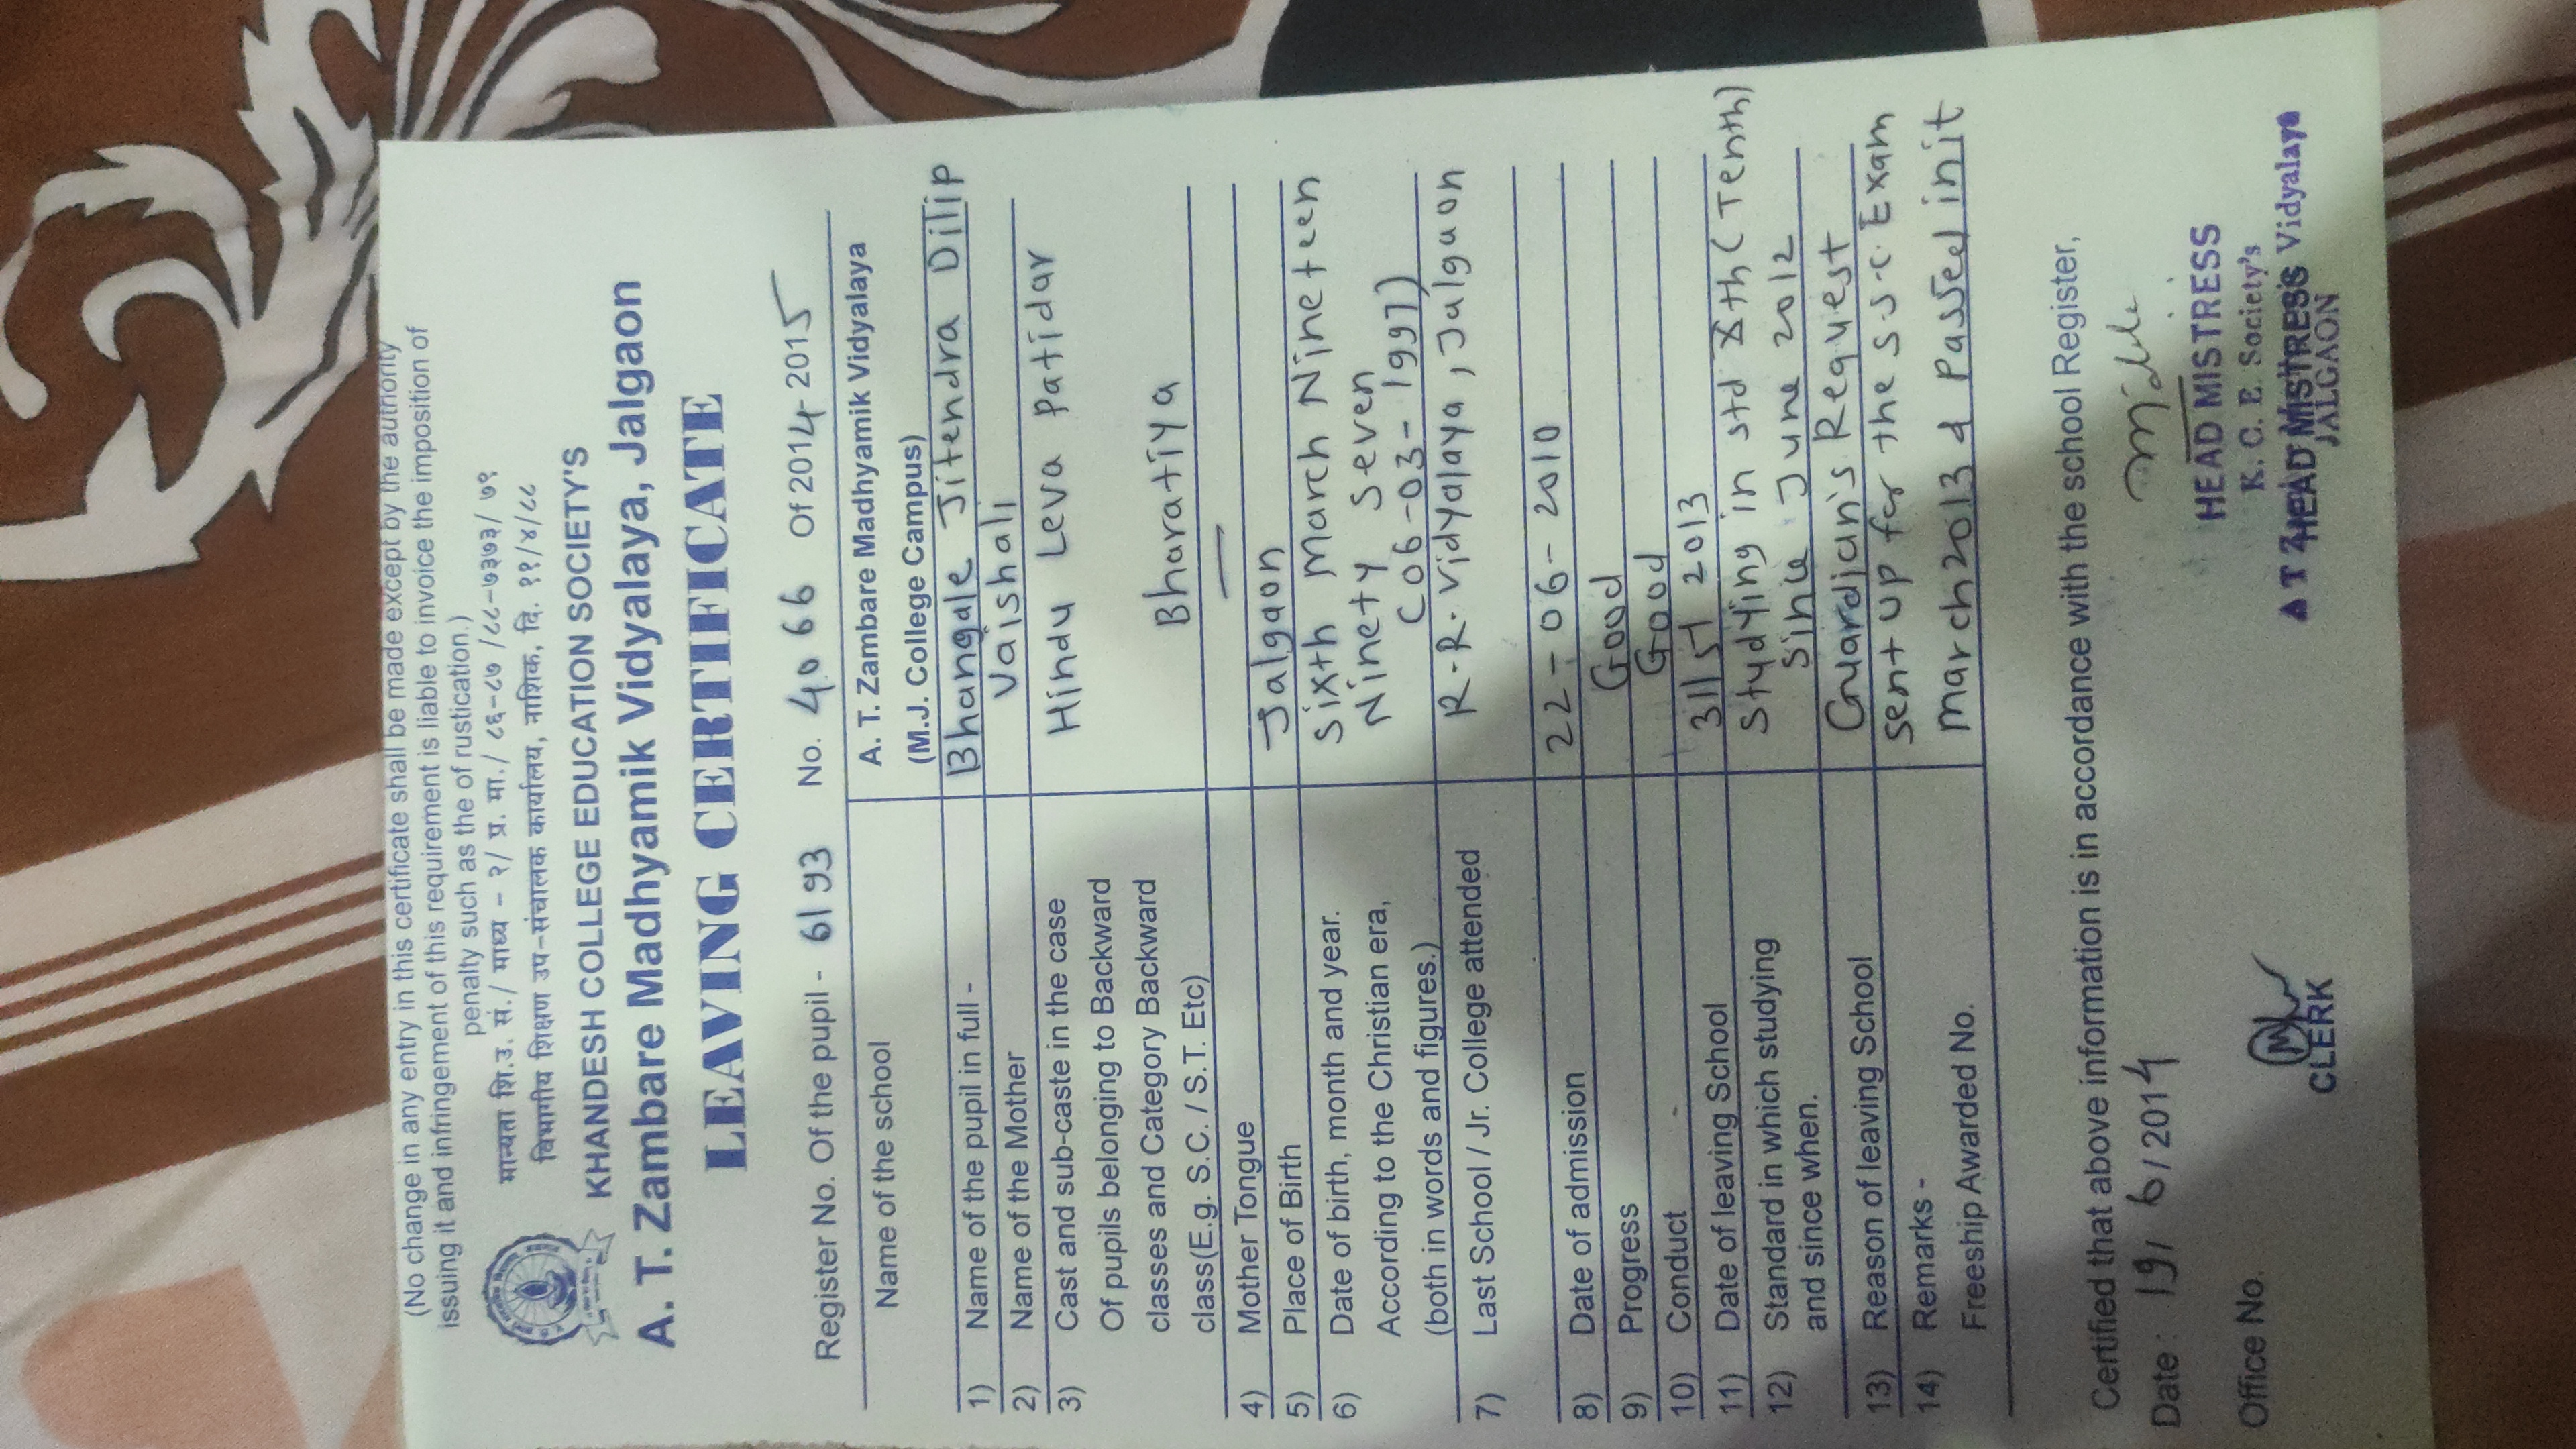 (No change in any entry in this certificate shall be made except by the authority
issuing it and infringement of this requirement is liable to invoice the imposition of
penalty such as the of rustication.)
मान्यता शि.उ. सं./ माध्य - २/ प्र. मा./ ८६-८७ /८८-७३७३/ ७९
विभागीय शिक्षण उप-संचालक कार्यालय, नाशिक, दि. ११/४/८८
KHANDESH COLLEGE EDUCATION SOCIETY'S
A. T. Zambare Madhyamik Vidyalaya, Jalgaon
LEAVING CERTIFICATE
Register No. Of the pupil - 6193 No. 4066 Of 2014-2015
Name of the school A. T. Zambare Madhyamik Vidyalaya
(M.J. College Campus)
1) Name of the pupil in full - Bhangale Jitendra Dilip
2) Name of the Mother Vaishali
3) Cast and sub-caste in the case Hindu Leva Patidar
Of pupils belonging to Backward
classes and Category Backward Bharatiya
class(E.g. S.C. / S.T. Etc) —
4) Mother Tongue
5) Place of Birth Jalgaon
6) Date of birth, month and year. Sixth March Nineteen
According to the Christian era, Ninety Seven
(both in words and figures.) (06-03-1997)
7) Last School / Jr. College attended R.R. Vidyalaya, Jalgaon
8) Date of admission 22-06-2010
9) Progress Good
10) Conduct Good
11) Date of leaving School 31/5/2013
12) Standard in which studying Studying in std Xth (Tenth)
and since when. Since June 2012
13) Reason of leaving School Guardian's Request
14) Remarks - Sent up for the S.S.C. Exam
Freeship Awarded No. March 2013 & Passed in it
Certified that above information is in accordance with the school Register,
Date : 19/6/2014
HEAD MISTRESS
K. C. E. Society's
A T Z HEAD MISTRESS Vidyalaya
JALGAON
Office No.
CLERK